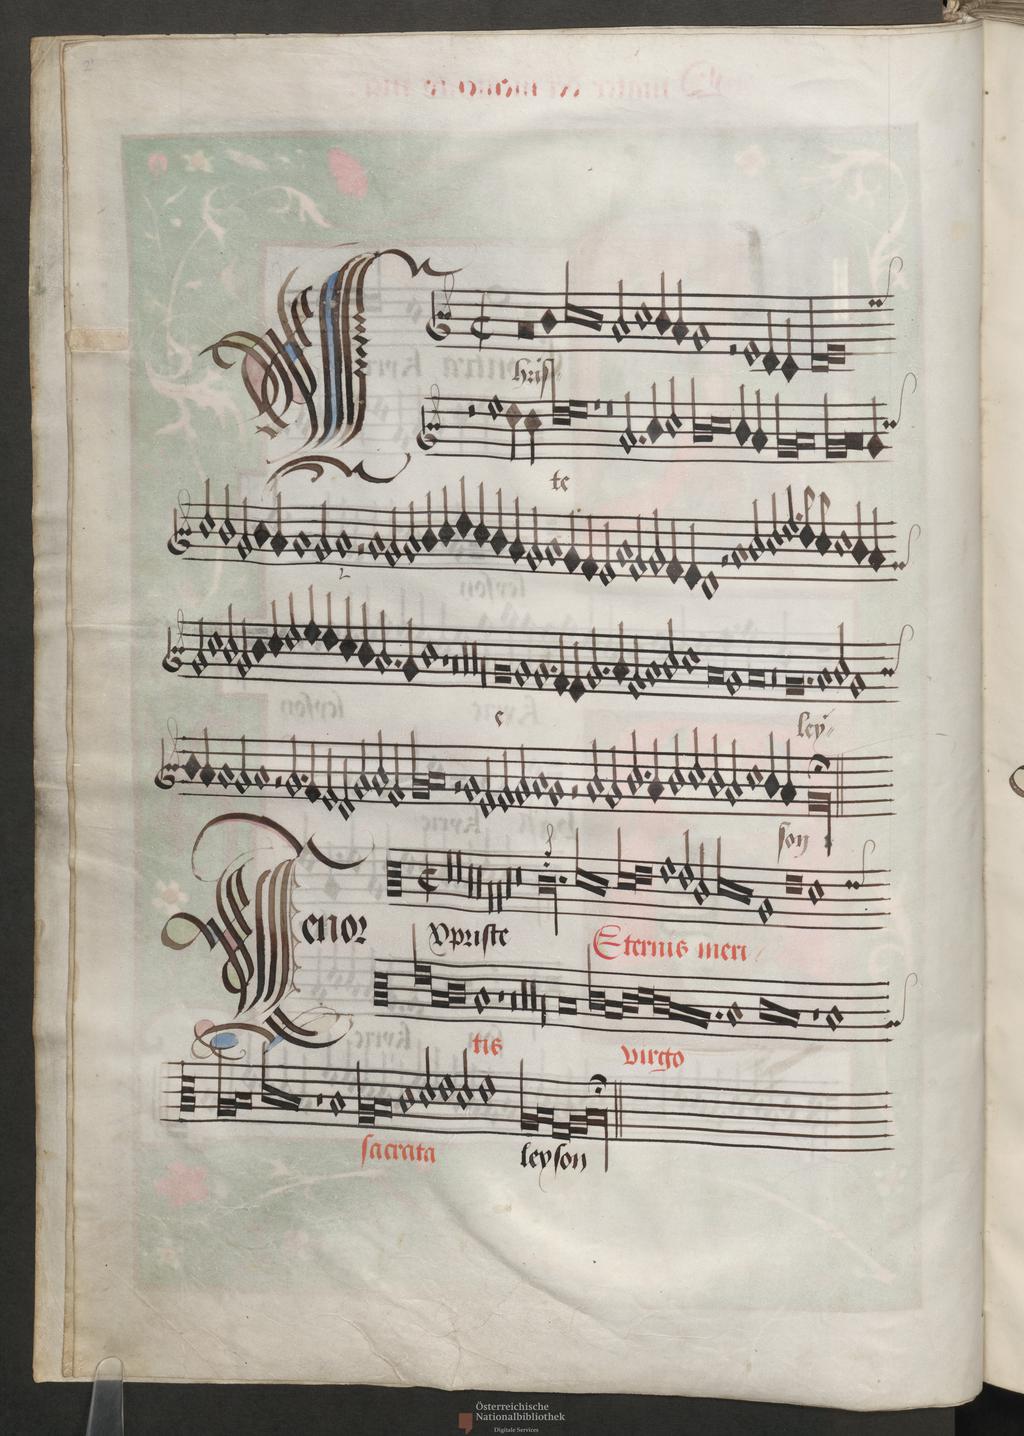 hrist
te
e
ley
son
enor Xpriste Eternis meri
tis virgo
sacrata leyson
Österreichische
Nationalbibliothek
Digitale Services